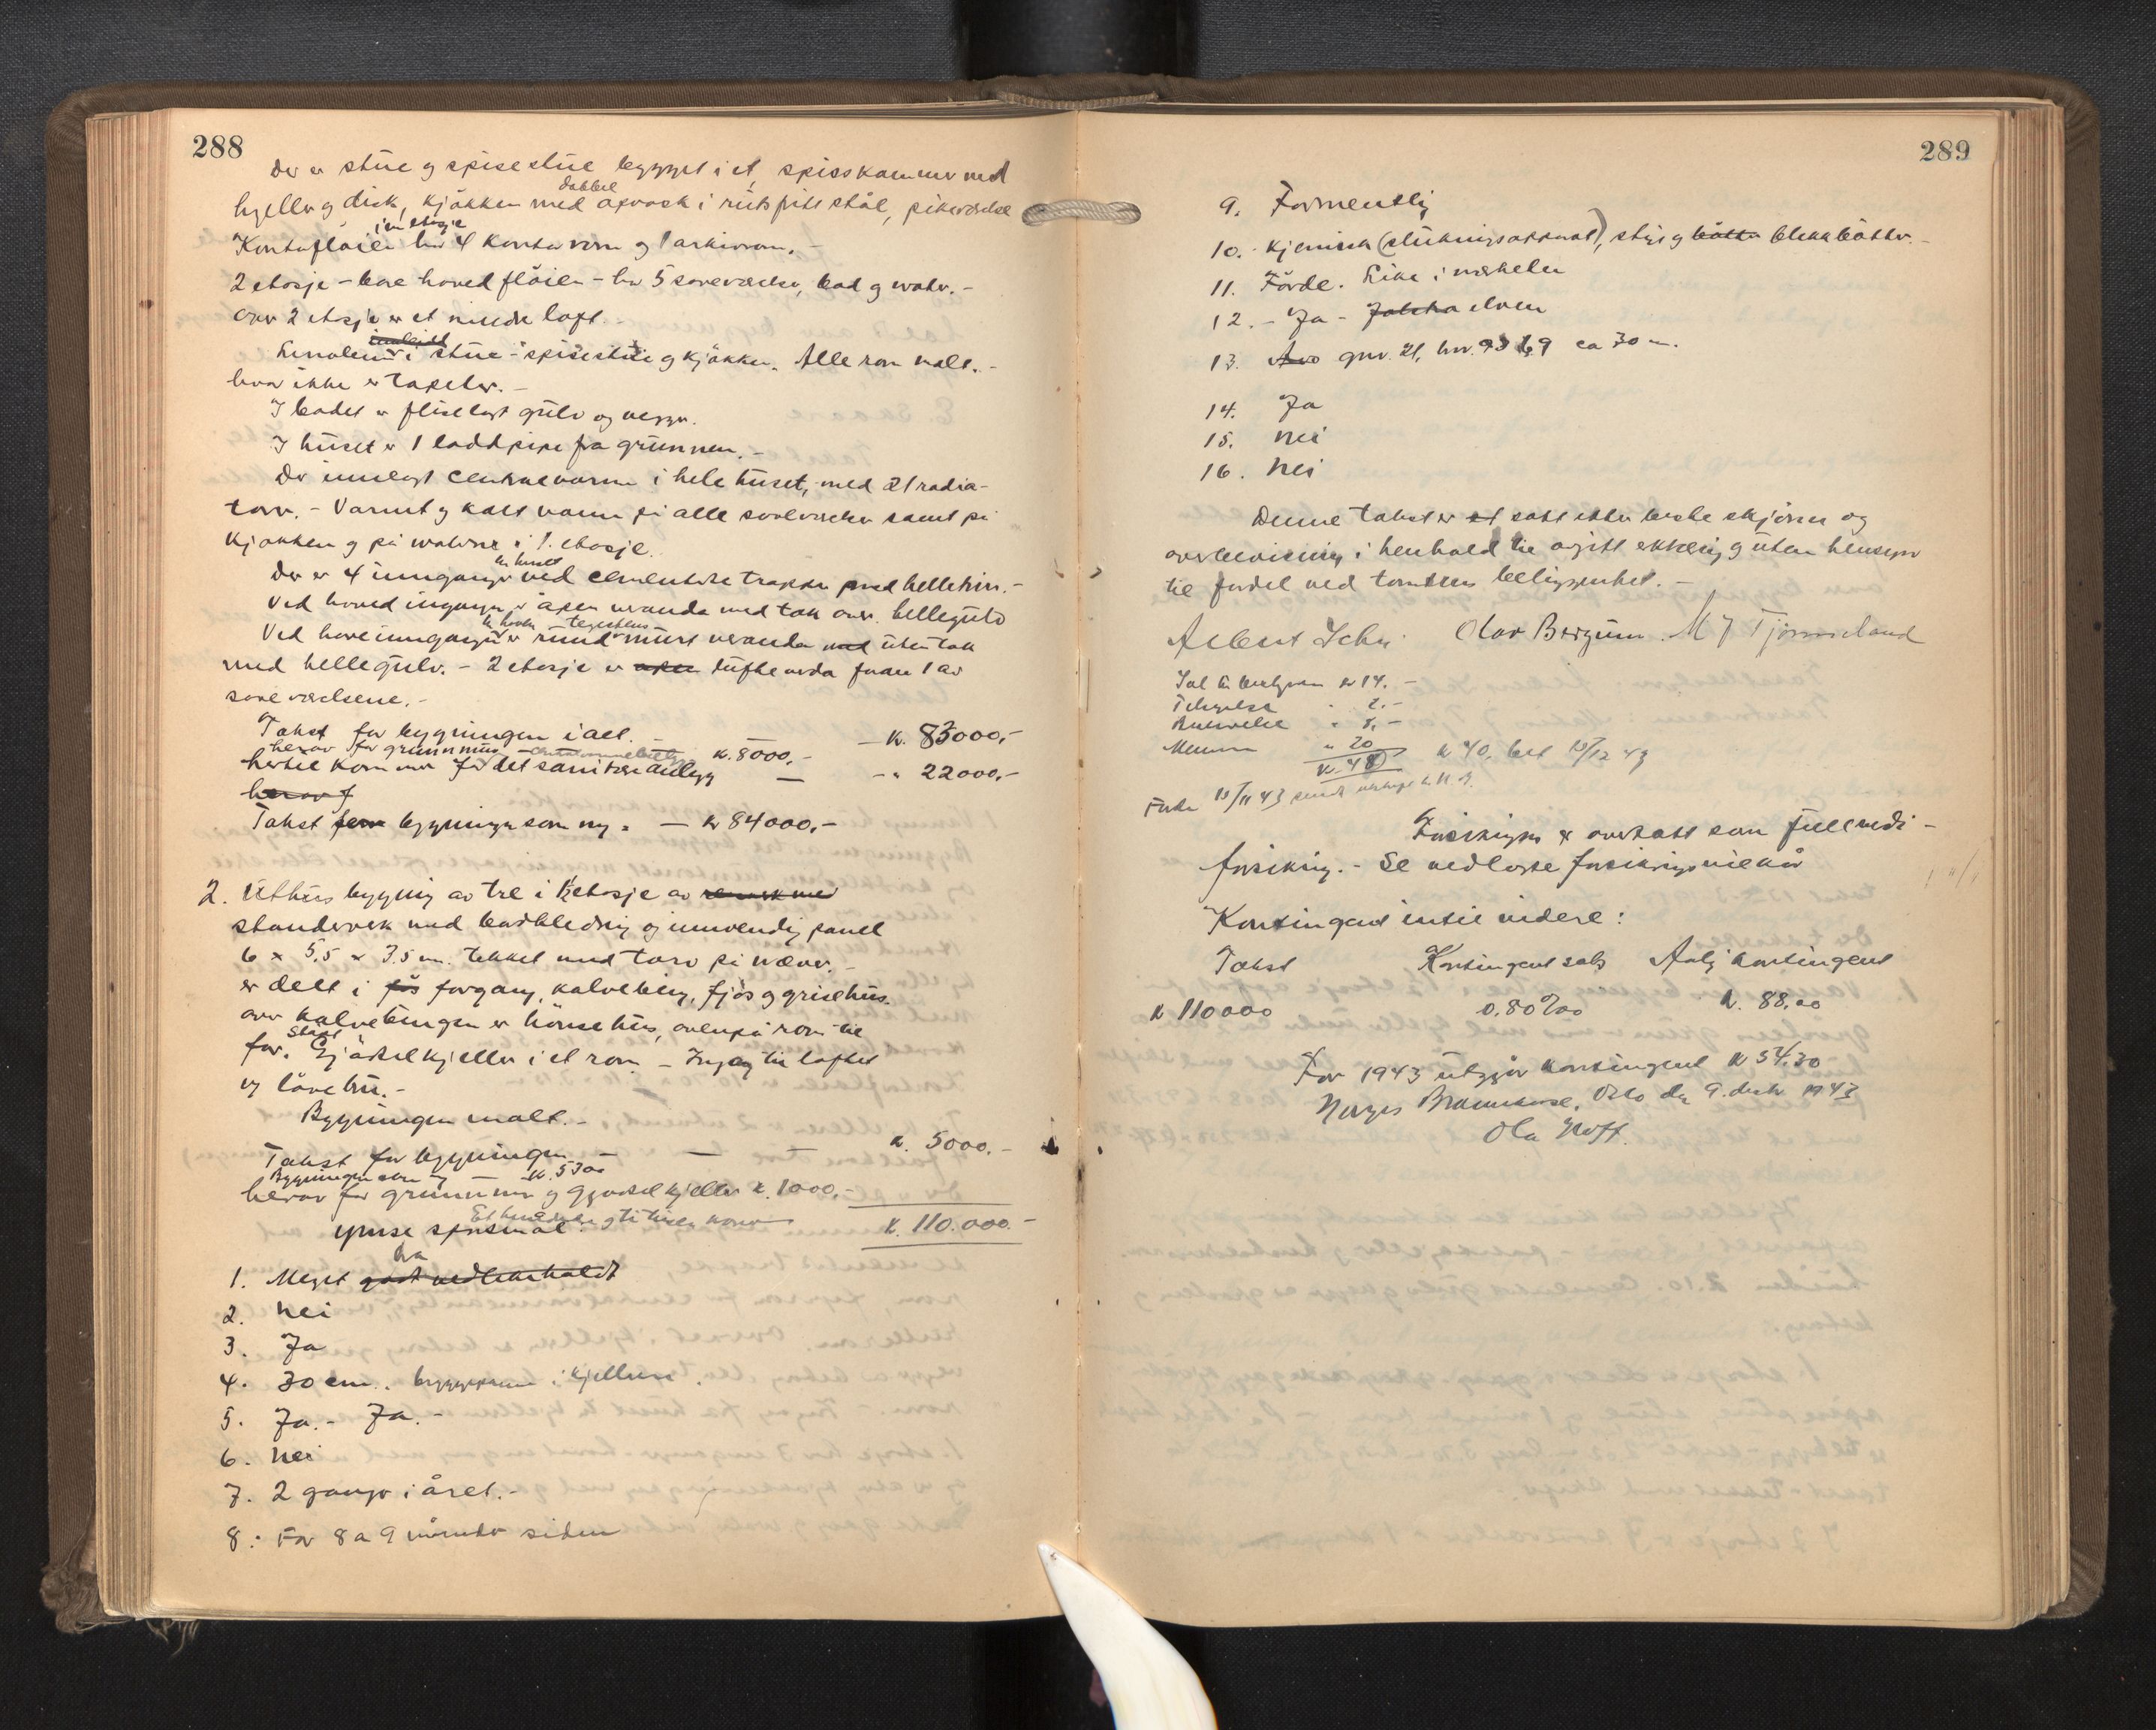 288
Der er stue og spisestue bygget i et, spisskammer med
hyller og disk, kjøkken med dobbel opvask i rustfritt stål, pikeværelse
Kontorfløien i en etasje har 4 kontorrom og 1 arkivrom. -
2 etasje - bare hovedfløien - har 5 soveværelser, bad og water. -
Over 2 etasje er et mindre loft. -
Linoleum i stue - spisestue og kjøkken. Alle rom malt. -
hvor ikke er tapeter. -
I badet er fliselagt gulv og vegger.
I huset er 1 loddpipe fra grunnen. -
Der innlagt centralvarme i hele huset, med 21 radia-
torer. - Varmt og kalt vann på alle soveværelser samt på
kjøkken og på waterne i 1. etasje.
Der er 4 innganger til huset ved cementerte trapper med heller. -
Ved hovedingangen er åpen veranda med tak over. hellegulv
Ved haveinngangen er rund murt veranda uten tak
med hellegulv. - 2 etasje er luftveranda foran 1 av
soveværelsene. -
Takst for bygningen i alt. - kr. 83000,-
herav for grunnmur kr. 8000,-
hertil kommer for det sanitære anlegg - - " 22000,-
herav f
Takst bygningen som ny. - kr 84000,-
2. Uthus bygning av tre i 1½ etasje av
standerverk med bordkledning og innvendig panel
6 x 5,5 x 3,5 m. tekket med torv på næver. -
er delt i forgang, kalvebing, fjøs og grisehus.
over kalvebingen er hønsehus, ovenpå rom til
for. Støpt Gjødselkjeller i et rom. - Ingang til loftet
og låvebru. -
Bygningen malt. -
Takst for bygningen - - kr. 5000.-
Bygningen som ny - kr. 5300
herav for grunnmur og gjødselkjeller kr. 1000,-
Et hundrede og ti tusen kroner kr. 110.000.-
Ymse spørsmål:
1. Meget bra godt vedlikeholdt
2. Nei
3. Ja
4. 30 cm. i kjelleren.
5. Ja. - Ja. -
6. Nei
7. 2 ganger i året. -
8. For 8 a 9 måneder siden
289
9. Forment­lig
10. Kjemisk (slukningsapparat), stige og bøtter blikkbøtter. -
11. Førde. Like i nærheten
12. - Ja - Jølstra elven
13. gnr. 21, bnr. ca 30 m.
14. Ja
15. Nei
16. Nei
Denne takst er satt etter beste skjønn og
overbevisning i henhold til avgitt erklæring og uten hensyn
til fordel ved tomtens beliggenhet. -
Albert Olav Bergum. M J Tjønneland
kr 14. -
" 2. -
" 20
kr. 48 kr 40, 13/12 43
Førde 13/11 43
Forsikringen er overtatt som fullverdi -
forsikring. - Se vedlagte forsikringsvilkår
Kontingent intil videre:
Takst Kontingentsats Årlig kontingent
kr 110000 0.80‰ kr. 88.00
For 1943 utgjør kontingent kr 54.30
Norges Brannkasse, Oslo den 9. desbr 1943
Ola Hoff.